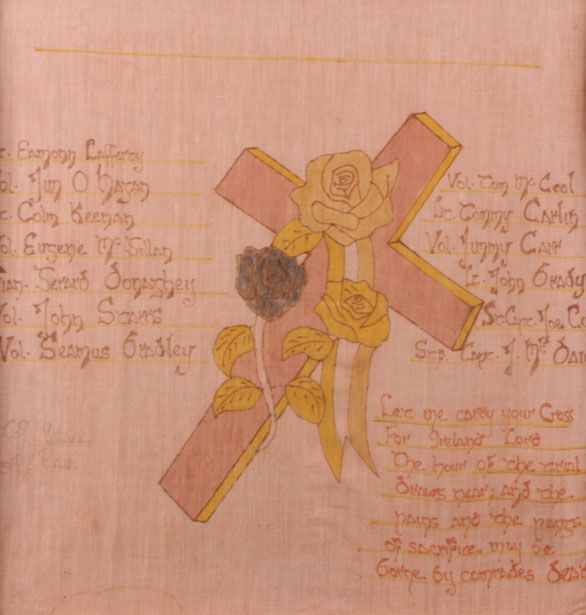 c. Eamonn Lafferty
ol. Jim O Hagan
c. Colm Keenan
ol. Eugene Mc Gillan
ian. Gerard Donaghey
Vol. John Starrs
Vol. Seamus Bradley
Vol. Tom Mc Cool
Lt. Tommy Carlin
Vol. Jimmy Carr
Lt. John Brady
St. Capt. Joe C
Sta. Capt. J. Mc Da
Let me carry your Cross
For Ireland Lord
The hour of the trial
draws near; and the
pains and the pangs
of sacrifice may be
borne by comrades dear